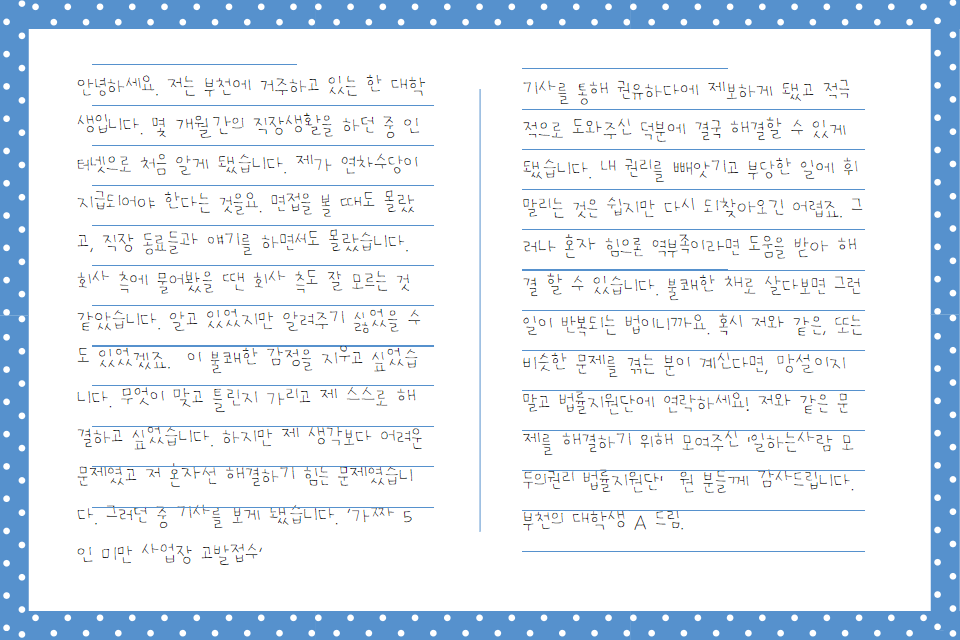 안녕하세요. 저는 부천에 거주하고 있는 한 대학
생입니다. 몇 개월간의 직장생활을 하던 중 인
터넷으로 처음 알게 됐습니다. 제가 연차수당이
지급되어야 한다는 것을요. 면접을 볼 때도 몰랐
고, 직장 동료들과 얘기를 하면서도 몰랐습니다.
회사 측에 물어봤을 땐 회사 측도 잘 모르는 것
같았습니다. 알고 있었지만 알려주기 싫었을 수
도 있었겠죠. 이 불쾌한 감정을 지우고 싶었습
니다. 무엇이 맞고 틀린지 가리고 제 스스로 해
결하고 싶었습니다. 하지만 제 생각보다 어려운
문제였고 저 혼자선 해결하기 힘든 문제였습니
다. 그러던 중 기사를 보게 됐습니다. '가짜 5
인 미만 사업장 고발접수'
기사를 통해 권유하다에 제보하게 됐고 적극
적으로 도와주신 덕분에 결국 해결할 수 있게
됐습니다. 내 권리를 빼앗기고 부당한 일에 휘
말리는 것은 쉽지만 다시 되찾아오긴 어렵죠. 그
러나 혼자 힘으로 역부족이라면 도움을 받아 해
결 할 수 있습니다. 불쾌한 채로 살다보면 그런
일이 반복되는 법이니까요. 혹시 저와 같은, 또는
비슷한 문제를 겪는 분이 계신다면, 망설이지
말고 법률지원단에 연락하세요! 저와 같은 문
제를 해결하기 위해 모여주신 '일하는사람 모
두의권리 법률지원단' 원 분들께 감사드립니다.
부천의 대학생 A 드림.